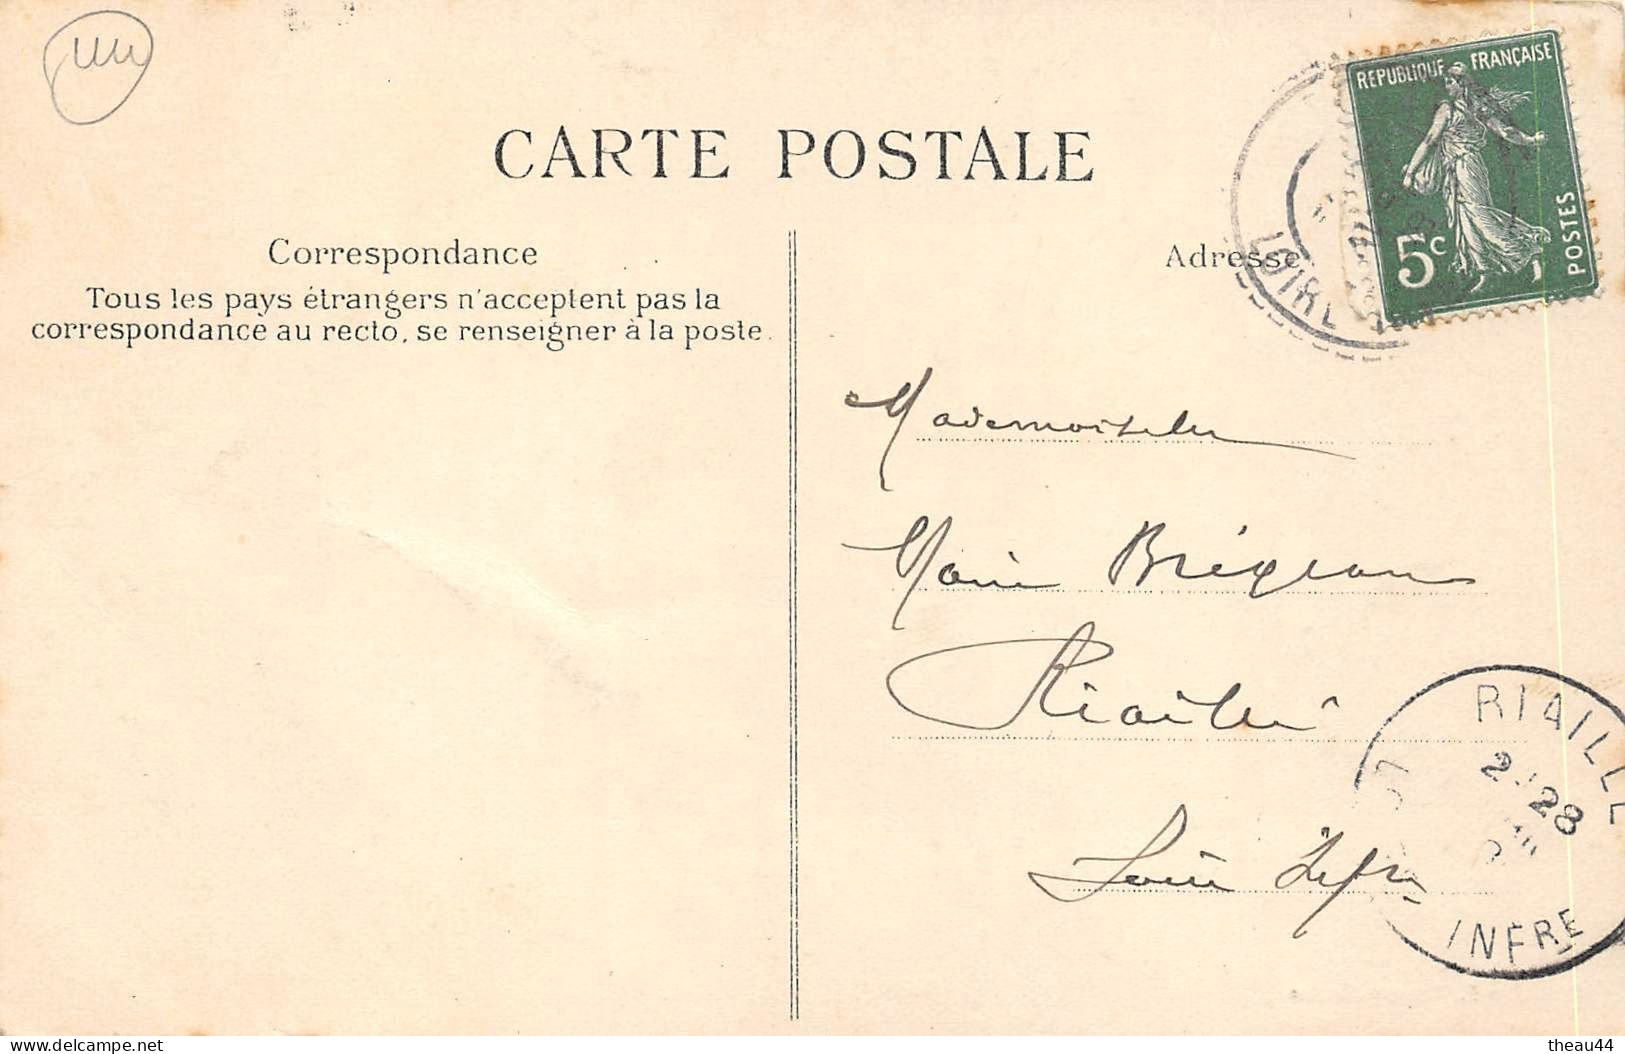 CARTE POSTALE
Correspondance
Tous les pays étrangers n'acceptent pas la
correspondance au recto, se renseigner à la poste.
Adresse
REPUBLIQUE FRANÇAISE
5c
POSTES
LOIRE
Mademoiselle
Marie
Riaillé
Loire Infre
RIAILLE
28
INFRE
Delcampe.net
theau44